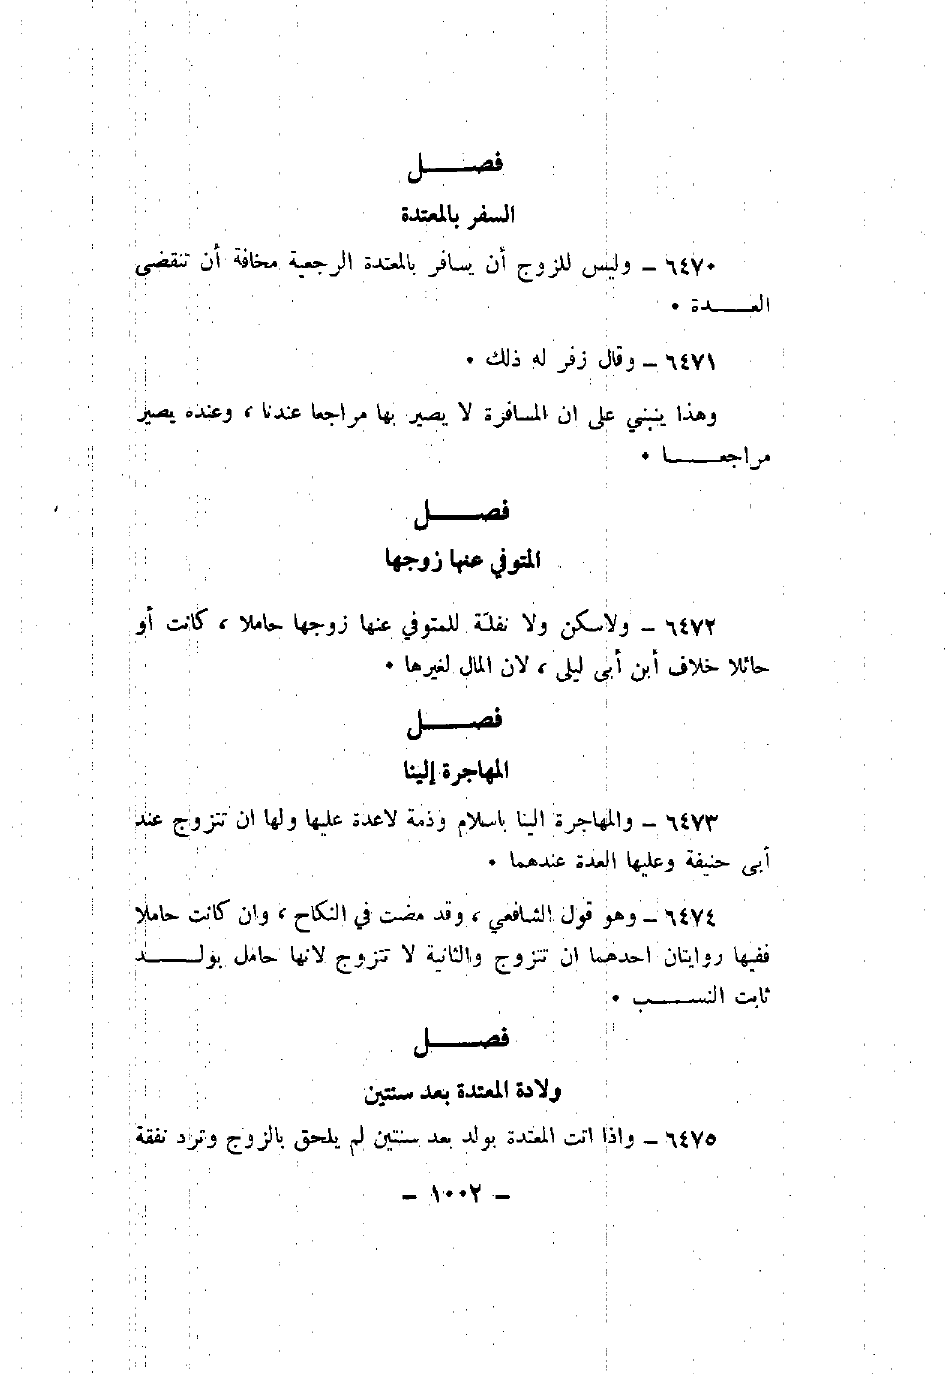 فصـــــل
السفر بالمعتدة
٦٤٧٠ – وليس للزوج أن يسافر بالمعتدة الرجعية مخافة أن تنقضي
العـــــدة •
٦٤٧١ – وقال زفر له ذلك •
وهذا ينبني على ان المسافرة لا يصير بها مراجعا عندنا ، وعنده يصير
مراجعـــــا •
فصـــــل
المتوفي عنها زوجها
٦٤٧٢ – ولاسكن ولا نفقة للمتوفي عنها زوجها حاملا ، كانت أو
حائلا خلاف أبن أبى ليلى ، لان المال لغيرها •
فصـــــل
المهاجرة إلينا
٦٤٧٣ – والمهاجرة الينا باسلام وذمة لاعدة عليها ولها ان تتزوج عند
أبى حنيفة وعليها العدة عندهما •
٦٤٧٤ – وهو قول الشافعي ، وقد مضت في النكاح ، وان كانت حاملا
ففيها روايتان احدهما ان تتزوج والثانية لا تتزوج لانها حامل بولـــــد
ثابت النســـــب •
فصـــــل
ولادة المعتدة بعد سنتين
٦٤٧٥ – واذا اتت المعتدة بولد بعد سنتين لم يلحق بالزوج وترد نفقة
– ١٠٠٢ –